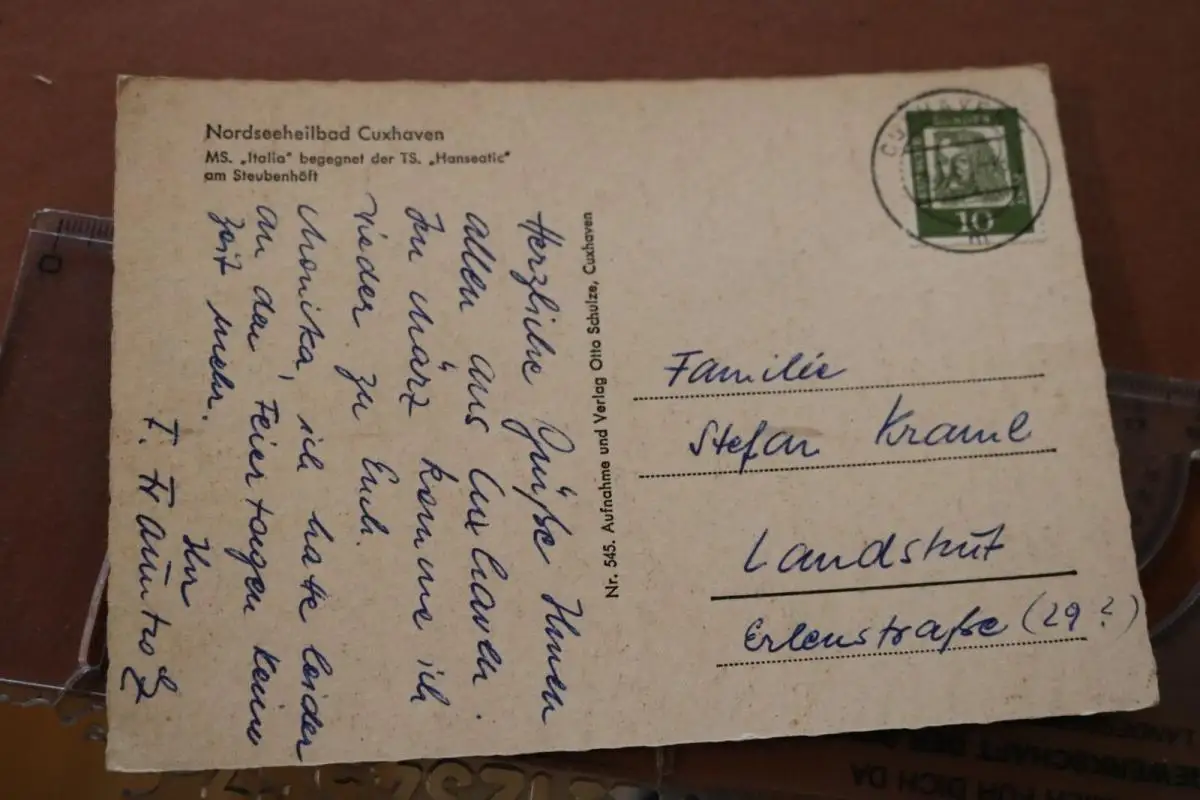 Nordseeheilbad Cuxhaven
MS. „Italia" begegnet der TS. „Hanseatic"
am Steubenhöft
Herzliche Grüße Ihnen
allen aus Cuxhaven.
Im März komme ich
wieder zu Euch.
Monika, ich hatte leider
an den Feiertagen keine
Zeit mehr.
Ihr
Nr. 545. Aufnahme und Verlag Otto Schulze, Cuxhaven
10
Familie
Stefan Kraml
Landshut
Erlenstraße (29?)